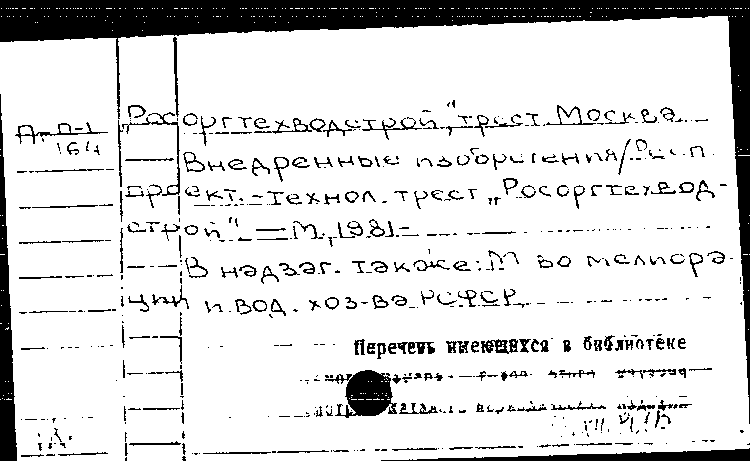 „Росоргтехводстрой", трест. Москва
П-1
164
Внедренные изобретения/Респ.
проект.-технол. трест „Росоргтехвод-
строй" — М., 1981-
В надзаг. также: М во мелиора-
ции и вод. хоз-ва РСФСР
Перечень имеющихся в библиотеке